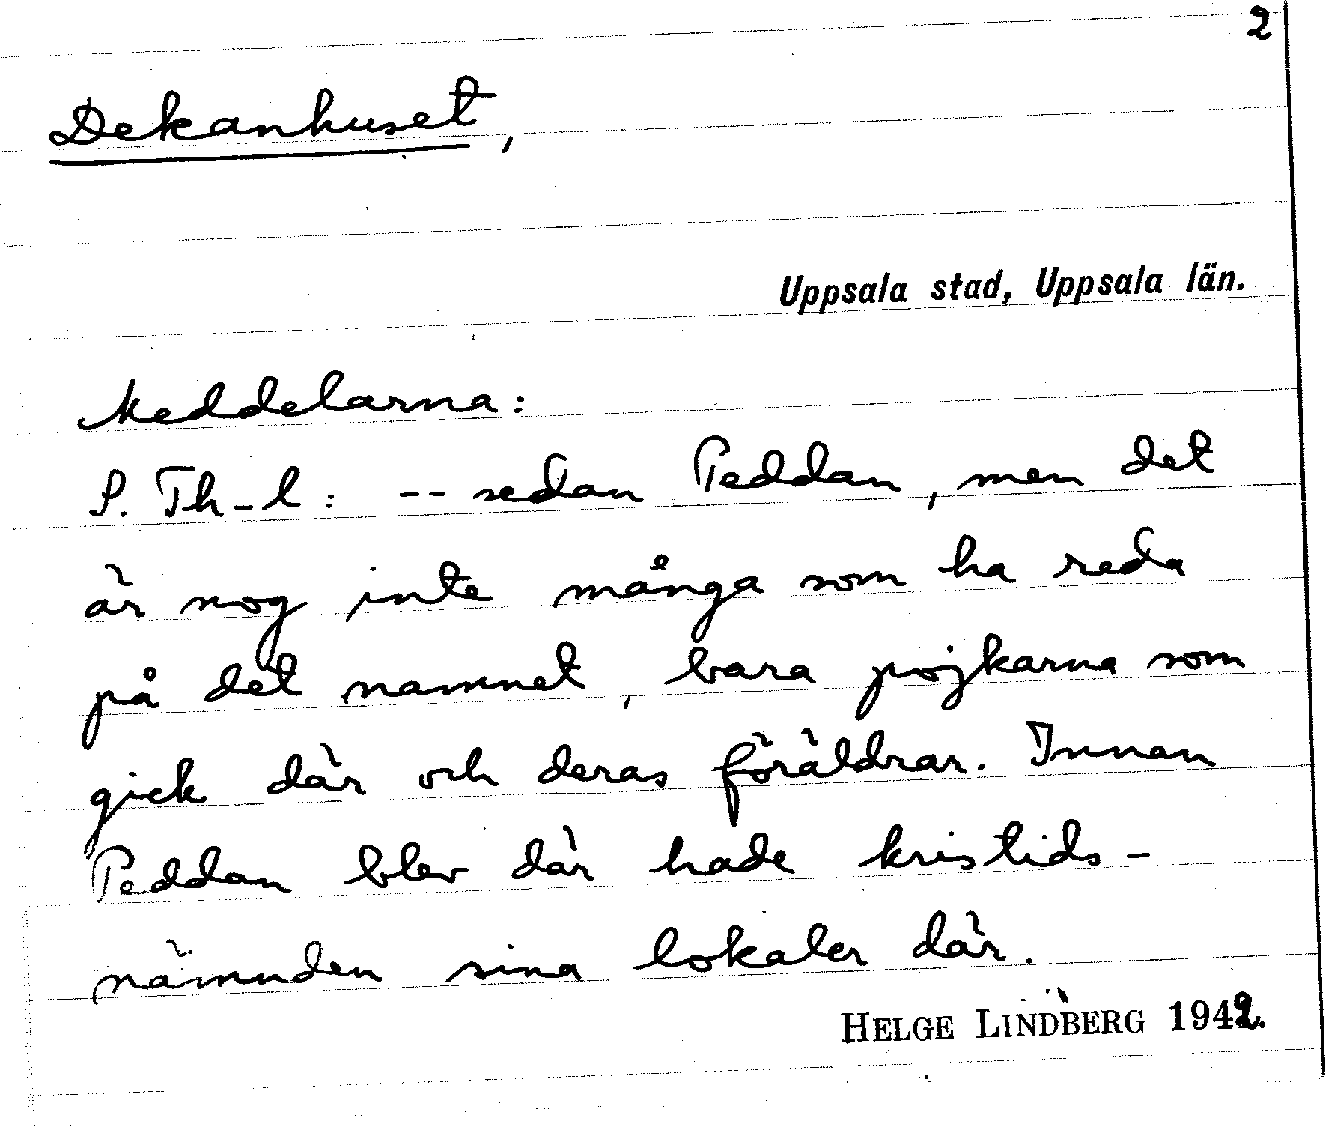 2
Dekanhuset,
Uppsala stad, Uppsala län.
Meddelarna:
S. Th-l: -- sedan Peddan, men det
är nog inte många som ha reda
på det namnet, bara pojkarna som
gick där och deras föräldrar. Innan
Peddan blev där hade kristids-
nämnden sina lokaler där.
HELGE LINDBERG 1942.